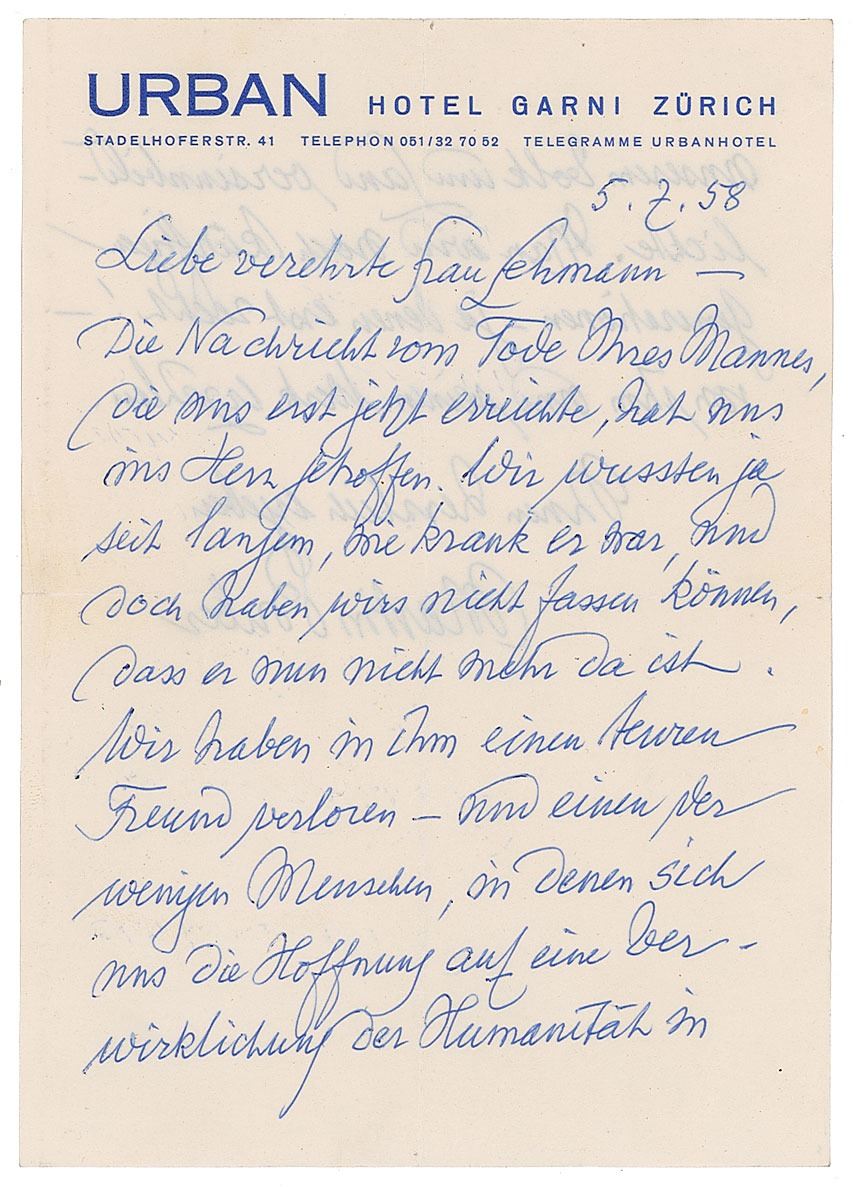 URBAN HOTEL GARNI ZÜRICH
STADELHOFERSTR. 41 TELEPHON 051/32 70 52 TELEGRAMME URBANHOTEL
5.7.58
Liebe verehrte Frau Lehmann —
Die Nachricht vom Tode Ihres Mannes,
die uns erst jetzt erreichte, hat uns
ins Herz getroffen. Wir wussten ja
seit langem, wie krank er war, und
doch haben wirs nicht fassen können,
dass er nun nicht mehr da ist.
Wir haben in ihm einen teuren
Freund verloren — und einen der
wenigen Menschen, in denen sich
uns die Hoffnung auf eine Ver-
wirklichung der Humanität in